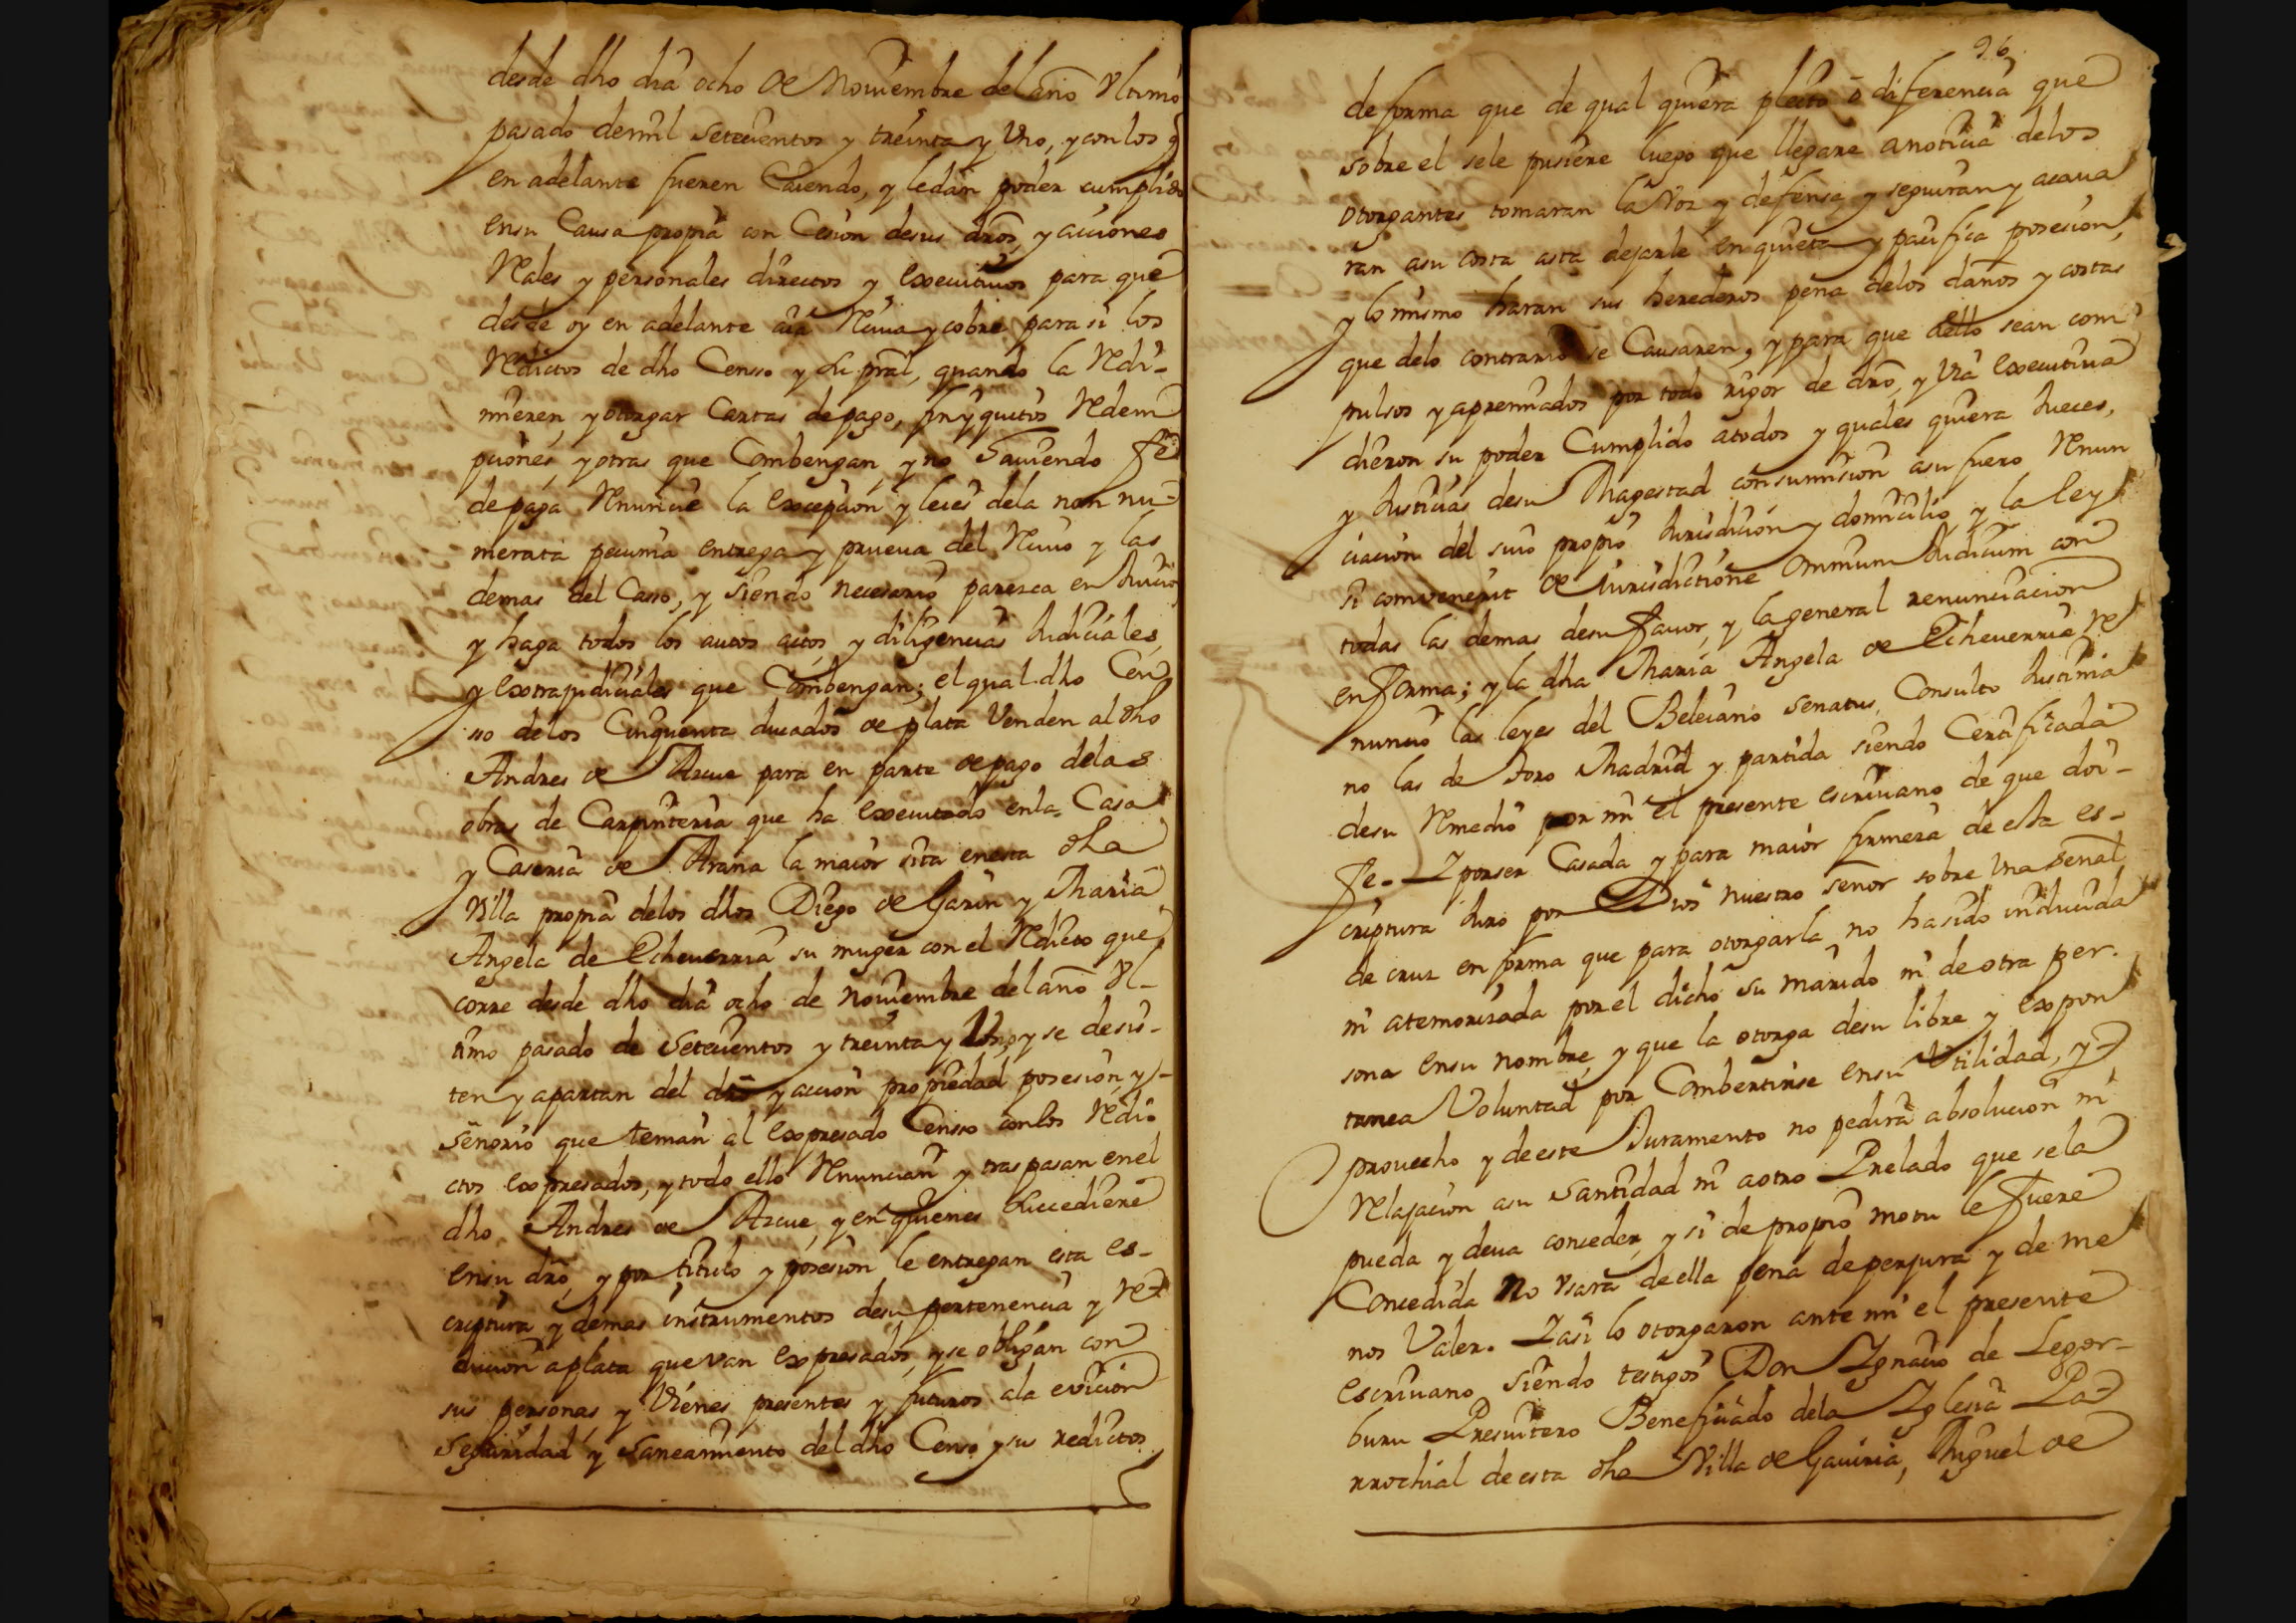 desde dho dia ocho de Nouiembre del año Vltimo
pasado demil Seteçientos y treinta y Vno, y con los q
en adelante fueren Caiendo, y ledan poder cumplido
ensu Causa propia con Cesion desus dros, y acciones
Reales y personales directos y Executiuos para que
desde oy en adelante aia Reciua y cobre para si los
Reditos de dho Censso y su pral, quando la Redi-
mieren, y otorgar Cartas de pago, finyquitos Redem
pciones, y otras que Combengan, y no Sauiendo fe
de paga Renuncie la Excepcion y leies dela non nu-
merata pecunia entrega y prueua del Reciuo y las
demas del Casso, y siendo necesario paresca en Juicio,
y haga todos los autos actos, y diligencias Judiciales,
y Extrajudiciales que Combengan; el qual dho Cen
so delos Cinquenta ducados de plata Venden al dho
Andres de Azcue para en parte de pago delas
obras de Carpinteria que ha Executado enla Casa
y Caseria de Arana la maior sita enesta dha
Villa propia delos dhos Diego de Garin y Maria
Angela de Echeuerria su muger con el Redicto que
corre desde dho dia ocho de nouiembre del año Vl-
timo pasado de Setecientos y treinta y Vno, y se desis-
ten y apartan del dro y accion propiedad posesion, y
señorio que tenian al Expresado Censso con los Redi-
ctos Expresados, y todo ello Renuncian y traspasan enel
dho Andres de Azcue, y en quienes Succediere
ensu dro, y por titulo y posesion le entregan esta es-
criptura y demas instrumentos desu pertenencia y Re-
ducion aplata que van Expresados, y se obligan con
sus personas, y Vienes presentes y futuros ala evicion
Seguridad y saneamiento del dho Censo y sus redictos
96,
de forma que de qual quiera pleito o diferencia que
sobre el sele pusiere luego que llegare anoticia delos
otorgantes tomaran la Voz y defensa y seguiran y acaua
ran asu costa asta dejarle en quieta y pacifica posesion,
y lo mismo haran sus herederos pena delos daños y costas
que delo contrario se Causaren, y para que dello sean com
pulsos y apremiados por todo rigor de dro, y Via Executiua
dieron su poder Cumplido atodos y quales quiera Jueces,
y Justicias desu Magestad con sumision asu fuero Renun
ciacion del suio propio Jurisdicion y domicilio, y la ley
si combenerit de Jurisdictione Omnium Judicum con
todas las demas desu fauor, y la general renunciacion
en forma; y la dha Maria Angela de Echeuerria Re
nuncio las leyes del Beleiano Senatus, Consulto Justinia
no las de toro Madrid y partida siendo Certificada
desu Remedio por mi el presente escriuano de que doi-
fe. Y por ser Casada y para maior firmeza de esta es-
criptura Juro por Dios nuestro señor sobre Vna señal
de cruz en forma que para otorgarla no ha sido inducida
ni atemorizada por el dicho su marido ni de otra per-
sona ensu nombre, y que la otorga desu libre y Expon
tanea Voluntad por Combertirse ensu Vtilidad, y
prouecho y de este Juramento no pedira absolucion ni
Relajacion asu Santidad ni aotro Prelado que sela
pueda y deua conceder, y si de propio motu le fuere
Concedida no Vsara de ella pena de perjura y de me
nos Valer. Y asi lo otorgaron ante mi el presente
escriuano siendo testigos Don Ignacio de Legor-
buru Presuitero Beneficiado dela Iglesia Pa-
rrochial de esta dha Villa de Gauiria, Miguel de